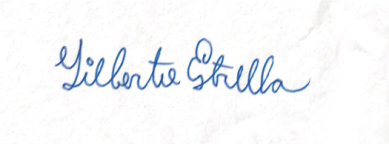 Gilberto Estrella